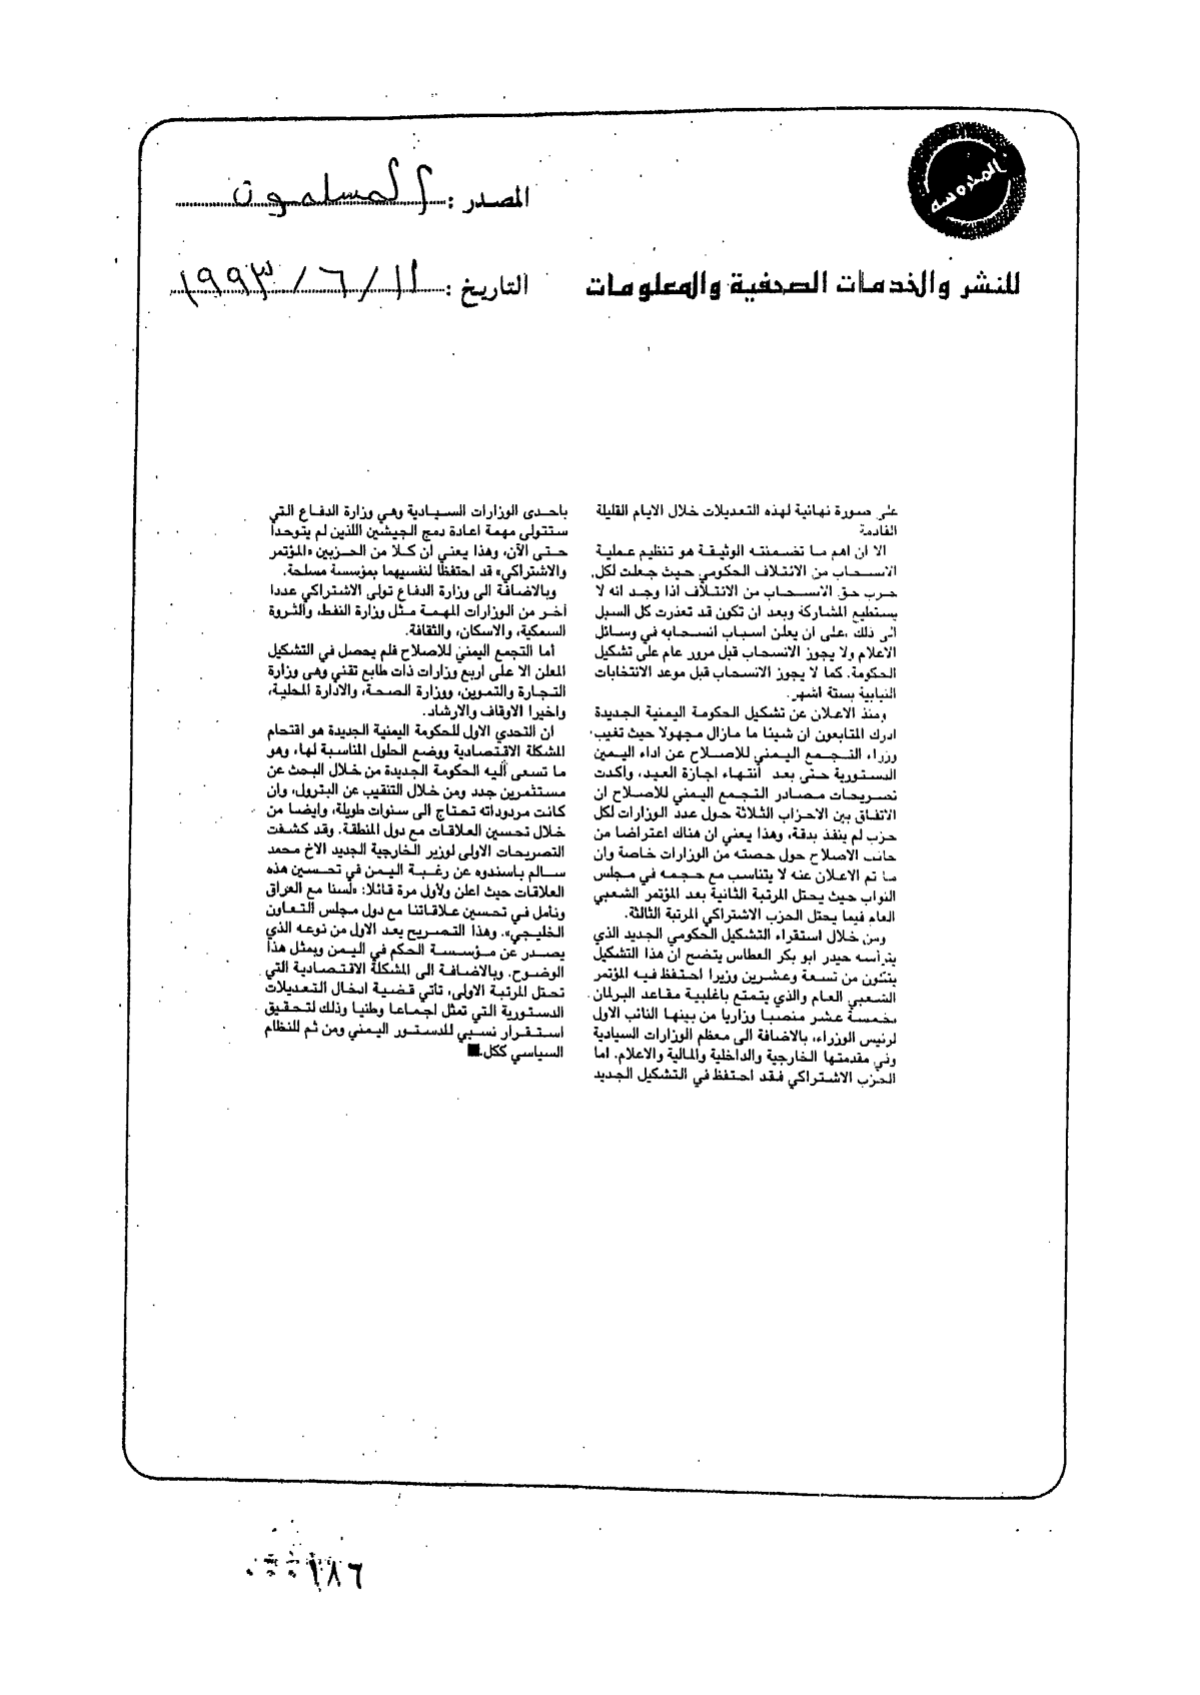 المحروسه
المصدر : المسلمون
للنشر والخدمات الصحفية والمعلومات
التاريخ : ١١ / ٦ / ١٩٩٣
على صورة نهائية لهذه التعديلات خلال الايام القليلة
القادمة
الا ان اهم ما تضمنته الوثيقة هو تنظيم عملية
الانسحاب من الائتلاف الحكومي حيث جعلت لكل
حزب حق الانسحاب من الائتلاف اذا وجد انه لا
يستطيع المشاركة وبعد ان تكون قد تعذرت كل السبل
الى ذلك ،على ان يعلن اسباب انسحابه في وسائل
الاعلام ولا يجوز الانسحاب قبل مرور عام على تشكيل
الحكومة. كما لا يجوز الانسحاب قبل موعد الانتخابات
النيابية بستة اشهر.
ومنذ الاعلان عن تشكيل الحكومة اليمنية الجديدة
ادرك المتابعون ان شيئا ما مازال مجهولا حيث تغيب
وزراء التجمع اليمني للاصلاح عن اداء اليمين
الدستورية حتى بعد انتهاء اجازة العيد، واكدت
تصريحات مصادر التجمع اليمني للاصلاح ان
الاتفاق بين الاحزاب الثلاثة حول عدد الوزارات لكل
حزب لم ينفذ بدقة، وهذا يعني ان هناك اعتراضا من
جانب الاصلاح حول حصته من الوزارات خاصة وان
ما تم الاعلان عنه لا يتناسب مع حجمه في مجلس
النواب حيث يحتل المرتبة الثانية بعد المؤتمر الشعبي
العام فيما يحتل الحزب الاشتراكي المرتبة الثالثة.
ومن خلال استقراء التشكيل الحكومي الجديد الذي
يترأسه حيدر ابو بكر العطاس يتضح ان هذا التشكيل
يتكون من تسعة وعشرين وزيرا احتفظ فيه المؤتمر
الشعبي العام والذي يتمتع باغلبية مقاعد البرلمان
بخمسة عشر منصبا وزاريا من بينها النائب الاول
لرئيس الوزراء، بالاضافة الى معظم الوزارات السيادية
وفي مقدمتها الخارجية والداخلية والمالية والاعلام. اما
الحزب الاشتراكي فقد احتفظ في التشكيل الجديد
باحدى الوزارات السيادية وهي وزارة الدفاع التي
ستتولى مهمة اعادة دمج الجيشين اللذين لم يتوحدا
حتى الآن، وهذا يعني ان كلا من الحزبين «المؤتمر
والاشتراكي» قد احتفظا لنفسيهما بمؤسسة مسلحة.
وبالاضافة الى وزارة الدفاع تولى الاشتراكي عددا
آخر من الوزارات المهمة مثل وزارة النفط، والثروة
السمكية، والاسكان، والثقافة.
أما التجمع اليمني للاصلاح فلم يحصل في التشكيل
المعلن الا على اربع وزارات ذات طابع تقني وهى وزارة
التجارة والتموين، ووزارة الصحة، والادارة المحلية،
واخيرا الاوقاف والارشاد.
ان التحدي الاول للحكومة اليمنية الجديدة هو اقتحام
المشكلة الاقتصادية ووضع الحلول المناسبة لها، وهو
ما تسعى اليه الحكومة الجديدة من خلال البحث عن
مستثمرين جدد ومن خلال التنقيب عن البترول، وان
كانت مردوداته تحتاج الى سنوات طويلة، وايضا من
خلال تحسين العلاقات مع دول المنطقة. وقد كشفت
التصريحات الاولى لوزير الخارجية الجديد الاخ محمد
سالم باسندوه عن رغبة اليمن في تحسين هذه
العلاقات حيث اعلن ولأول مرة قائلا: «لسنا مع العراق
ونامل في تحسين علاقاتنا مع دول مجلس التعاون
الخليجي». وهذا التصريح يعد الاول من نوعه الذي
يصدر عن مؤسسة الحكم في اليمن وبمثل هذا
الوضوح. وبالاضافة الى المشكلة الاقتصادية التي
تحتل المرتبة الاولى، تأتي قضية ادخال التعديلات
الدستورية التي تمثل اجماعا وطنيا وذلك لتحقيق
استقرار نسبي للدستور اليمني ومن ثم للنظام
السياسي ككل.■
١٨٦